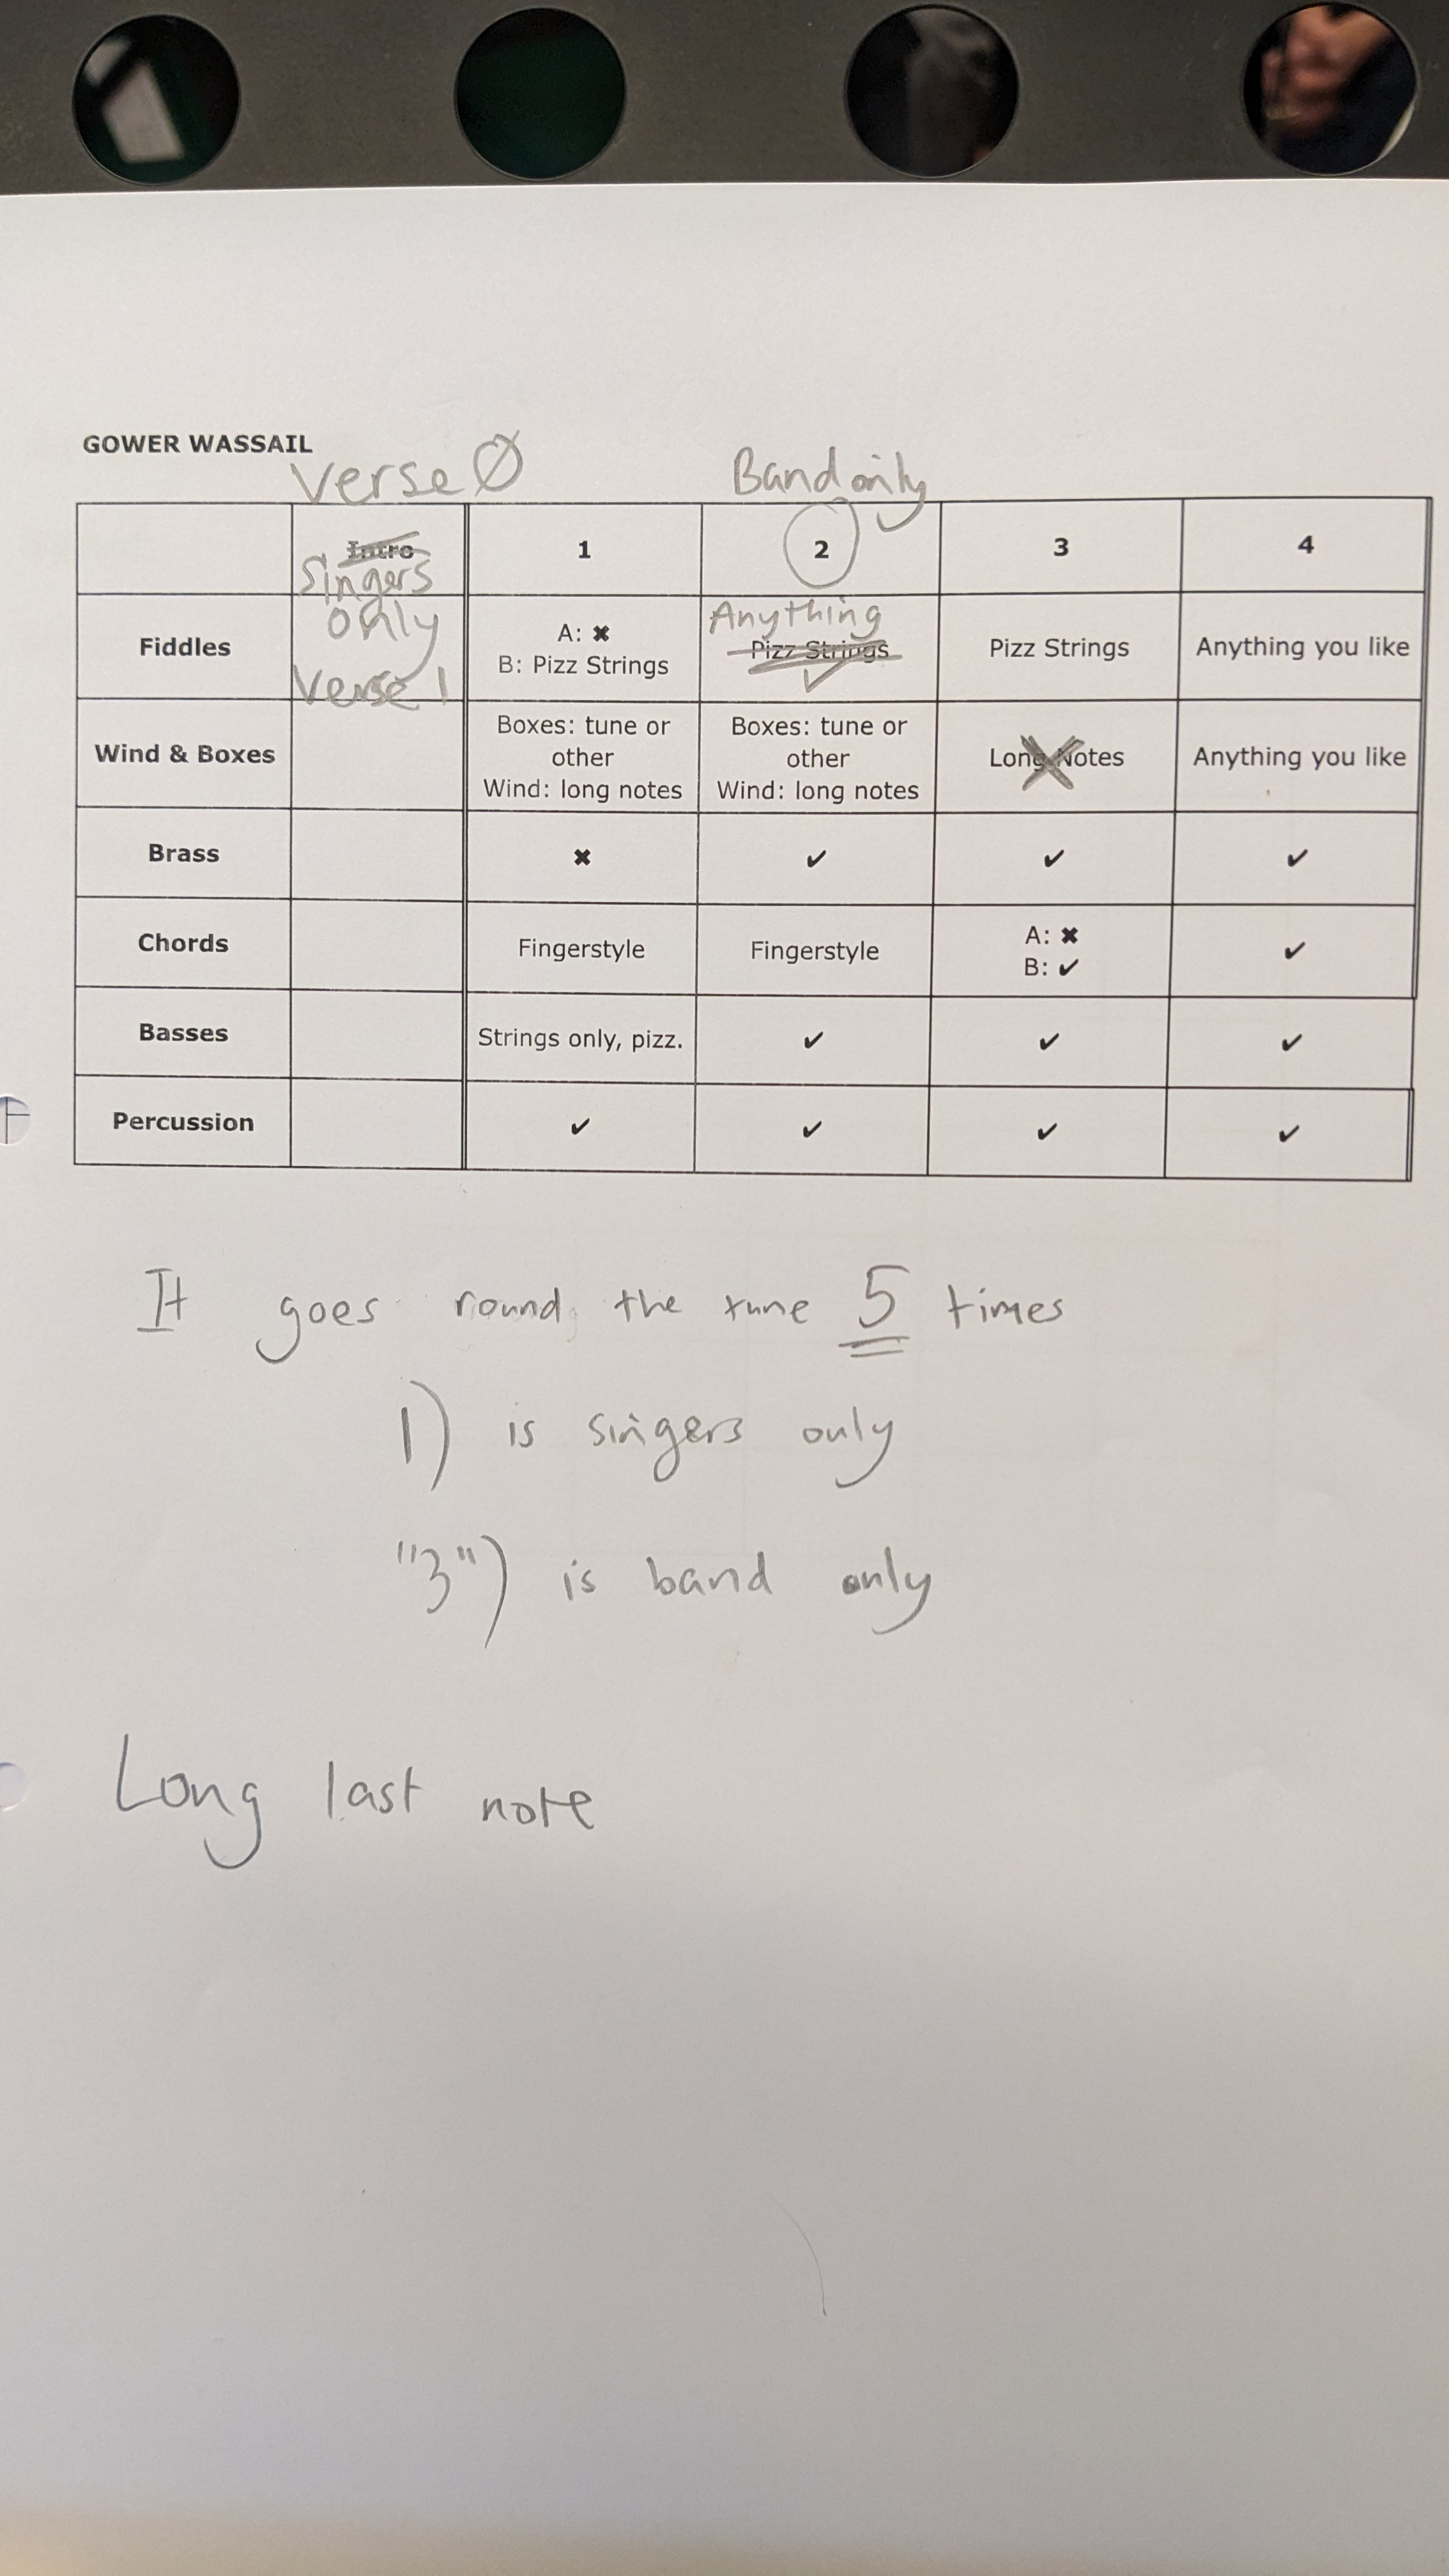 GOWER WASSAIL
Verse Ø
Band only
Intro 1 2 3 4
Singers
only
Verse 1
Fiddles
A: ✖
B: Pizz Strings
Anything
Pizz Strings
✓
Pizz Strings
Anything you like
Wind & Boxes
Boxes: tune or
other
Wind: long notes
Boxes: tune or
other
Wind: long notes
Long Notes
Anything you like
Brass ✖ ✔ ✔ ✔
Chords
Fingerstyle
Fingerstyle
A: ✖
B: ✔
✔
Basses
Strings only, pizz.
✔ ✔ ✔
Percussion ✔ ✔ ✔ ✔
It goes round the tune 5 times
1) is singers only
"3") is band only
Long last note